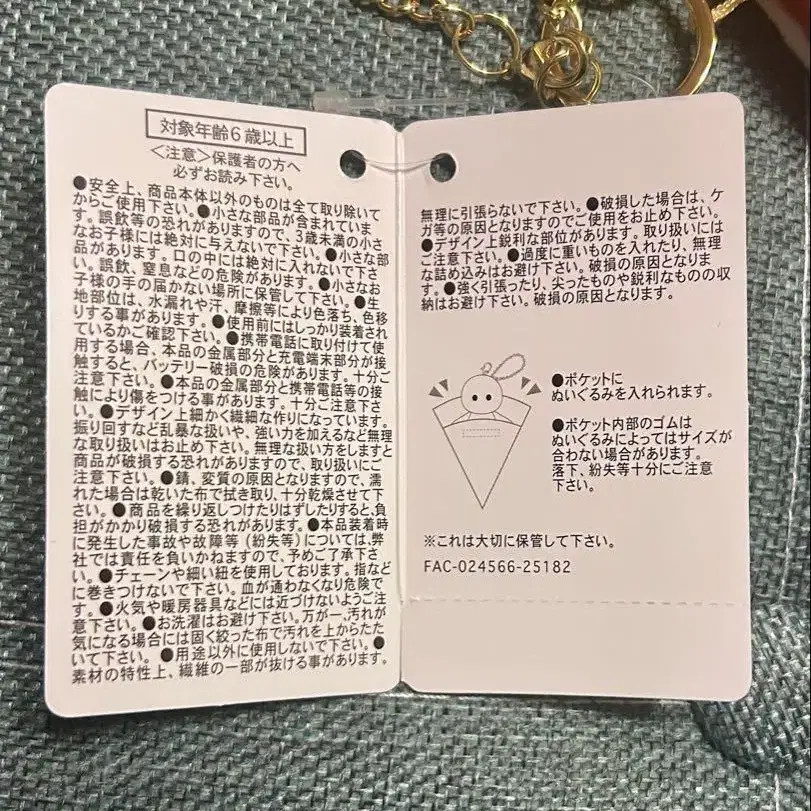 対象年齢6歳以上
＜注意＞保護者の方へ
必ずお読み下さい。
●安全上、商品本体以外のものは全て取り除いて
からご使用下さい。●小さな部品が含まれていま
す。誤飲等の恐れがありますので、3歳未満の小さ
なお子様には絶対に与えないで下さい。●小さな部
品があります。口の中には絶対に入れないで下さ
い。誤飲、窒息などの危険があります。●小さなお
子様の手の届かない場所に保管して下さい。●生
地部位は、水漏れや汗、摩擦等により色落ち、色移
りする事があります。●使用前にはしっかり装着され
ているかご確認下さい。●携帯電話に取り付けて使
用する場合、本品の金属部分と充電端末部分が接
触すると、バッテリー破損の危険があります。十分ご
注意下さい。●本品の金属部分と携帯電話等の接
触により傷をつける事があります。十分ご注意下さ
い。●デザイン上細かく繊細な作りになっています。
振り回すなど乱暴な扱いや、強い力を加えるなど無理
な取り扱いはお止め下さい。無理な扱い方をしますと
商品が破損する恐れがありますので、取り扱いにご
注意下さい。●錆、変質の原因となりますので、濡
れた場合は乾いた布で拭き取り、十分乾燥させて下
さい。●商品を繰り返しつけたりはずしたりすると、負
担がかかり破損する恐れがあります。●本品装着時
に発生した事故や故障等（紛失等）については、弊
社では責任を負いかねますので、予めご了承下さ
い。●チェーンや細い紐を使用しております。指など
に巻きつけないで下さい。血が通わなくなり危険で
す。●火気や暖房器具などには近づけないようご注
意下さい。●お洗濯はお避け下さい。万が一、汚れが
気になる場合には固く絞った布で汚れを上からたた
いて下さい。●用途以外に使用しないで下さい。●
素材の特性上、繊維の一部が抜ける事があります。
無理に引張らないで下さい。●破損した場合は、ケ
ガ等の原因となりますのでご使用をお止め下さい。
●デザイン上鋭利な部位があります。取り扱いには
ご注意下さい。●過度に重いものを入れたり、無理
な詰め込みはお避け下さい。破損の原因となりま
す。●強く引張ったり、尖ったものや鋭利なものの収
納はお避け下さい。破損の原因となります。
●ポケットに
ぬいぐるみを入れられます。
●ポケット内部のゴムは
ぬいぐるみによってはサイズが
合わない場合があります。
落下、紛失等十分にご注意
下さい。
※これは大切に保管して下さい。
FAC-024566-25182